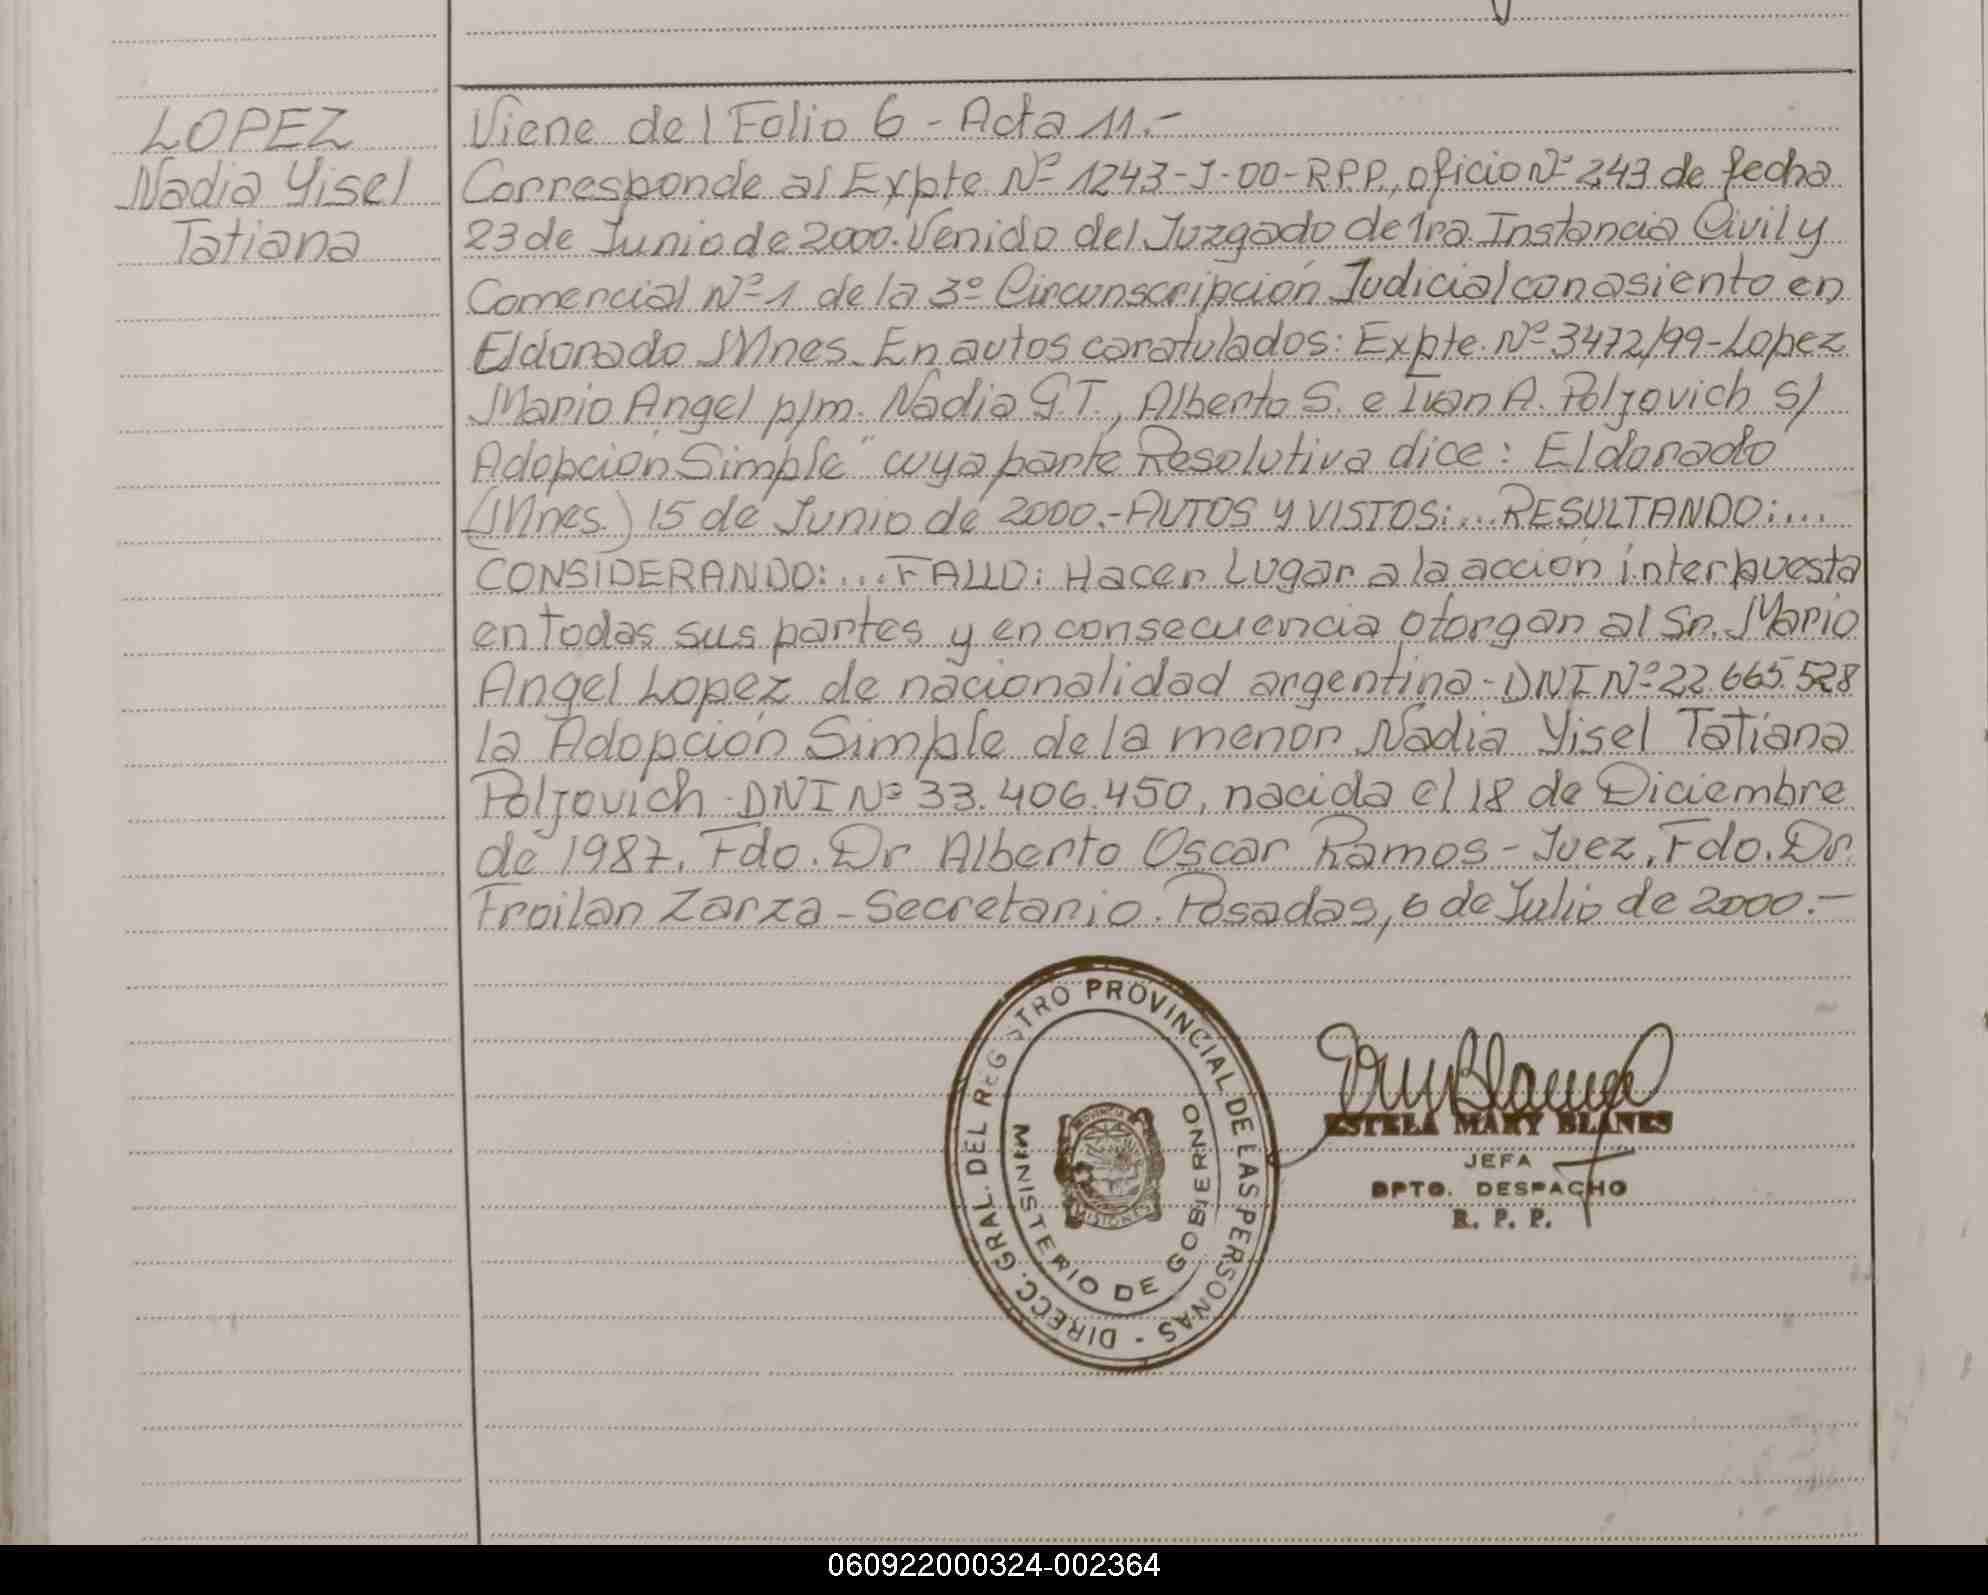 LOPEZ
Nadia Yisel
Tatiana
Viene del Folio 6 - Acta 11.-
Corresponde al Expte Nº 1243-J-00-R.P.P., oficio Nº 243 de fecha
23 de Junio de 2000. Venido del Juzgado de 1ra. Instancia Civil y
Comercial Nº 1 de la 3º Circunscripción Judicial con asiento en
Eldorado Mnes. En autos caratulados: Expte. Nº 3472/99-Lopez
Mario Angel p/m. Nadia G.T., Alberto S. e Ivan A. Poljovich s/
Adopción Simple" cuya parte Resolutiva dice: Eldorado
(Mnes.) 15 de Junio de 2000.- AUTOS Y VISTOS:...RESULTANDO:...
CONSIDERANDO:...FALLO: Hacer Lugar a la acción interpuesta
en todas sus partes y en consecuencia otorgan al Sr. Mario
Angel Lopez de nacionalidad argentina - DNI Nº 22.665.528
la Adopción Simple de la menor Nadia Yisel Tatiana
Poljovich - DNI Nº 33.406.450, nacida el 18 de Diciembre
de 1987. Fdo. Dr Alberto Oscar Ramos - Juez. Fdo. Dr.
Froilan Zarza - Secretario. Posadas, 6 de Julio de 2000.-
DIRECC. GRAL. DEL REGISTRO PROVINCIAL DE LAS PERSONAS -
MINISTERIO DE GOBIERNO
PROVINCIA
MISIONES
ESTELA MARY BLANES
JEFA
DPTO. DESPACHO
R. P. P.
060922000324-002364